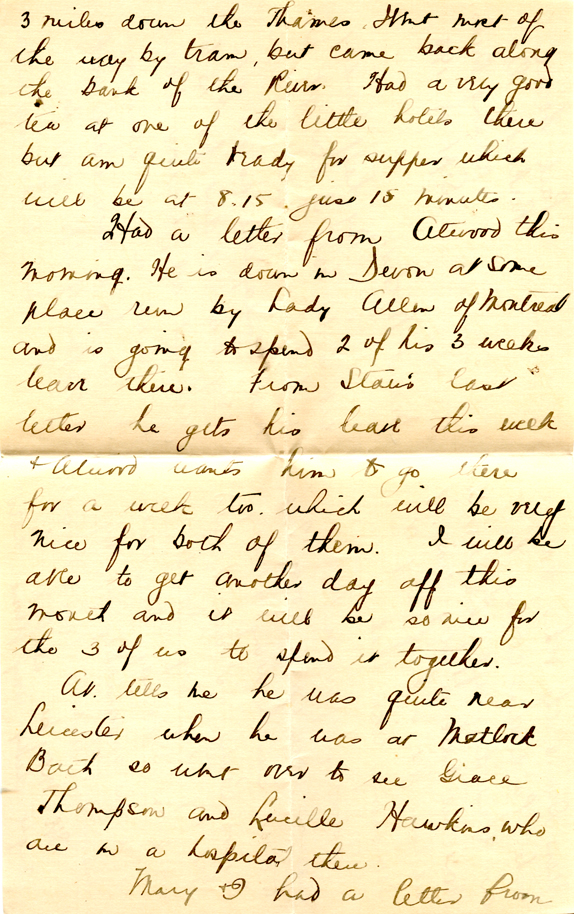 3 miles down the Thames. Went most of
the way by tram, but came back along
the bank of the River. Had a very good
tea at one of the little hotels there
but am quite ready for supper which
will be at 8.15. just 15 minutes.
Had a letter from Atwood this
morning. He is down in Devon at some
place run by Lady Allen of Montreal
and is going to spend 2 of his 3 weeks
leave there. From Stan's last
letter he gets his leave this week
+ Atwood wants him to go there
for a week too. which will be very
nice for both of them. I will be
able to get another day off this
month and it will be so nice for
the 3 of us to spend it together.
At. tells me he was quite near
Leicester when he was at Matlock
Bath so went over to see Grace
Thompson and Lucille Hawkins, who
are in a hospital there.
Mary & I had a letter from